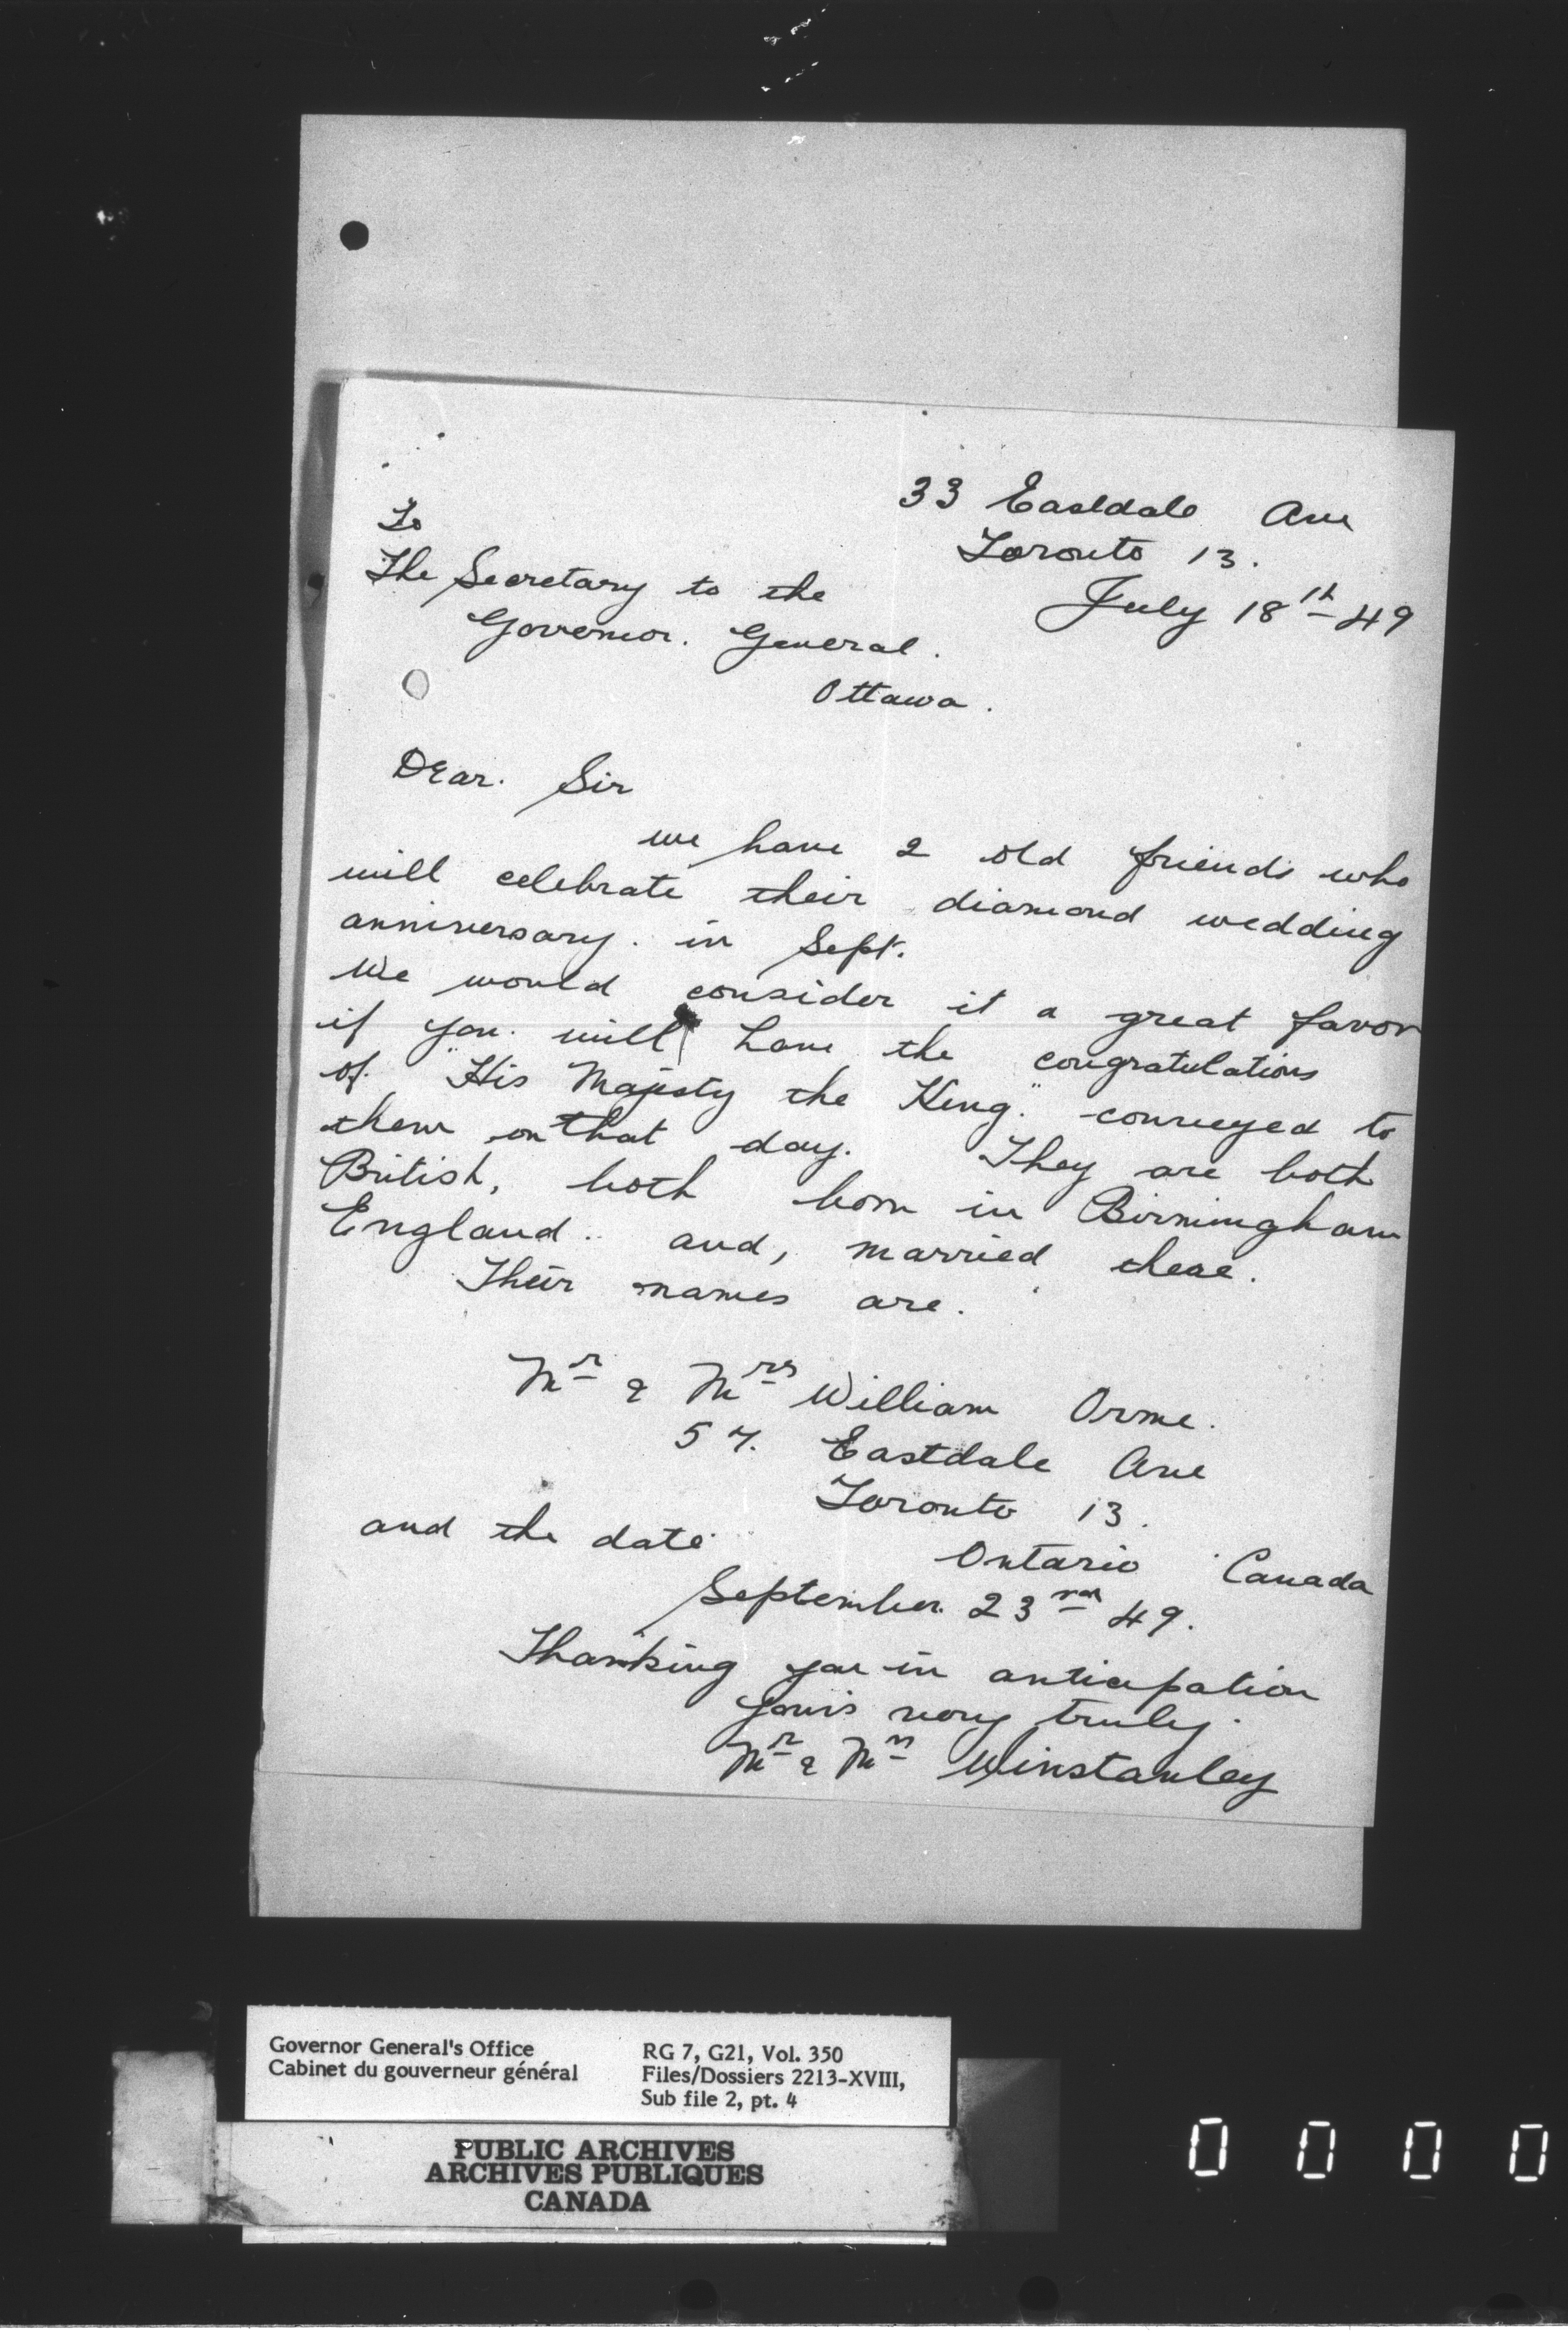 33 Eastdale Ave
Toronto 13.
July 18th 49
To
The Secretary to the
Governor. General.
Ottawa.
Dear. Sir
we have 2 old friends who
will celebrate their diamond wedding
anniversary. in Sept.
We would consider it a great favor
if you. will have the congratulations
of. "His Majesty the King." conveyed to
them on that day. They are both
British, both born in Birmingham
England.. and, married there.
Their names are.
Mr & Mrs William Orme.
57. Eastdale Ave
Toronto 13.
Ontario Canada
and the date
September 23rd 49.
Thanking you in anticipation
yours very truly.
Mr & Mrs Winstanley
Governor General's Office
Cabinet du gouverneur général
RG 7, G21, Vol. 350
Files/Dossiers 2213-XVIII,
Sub file 2, pt. 4
PUBLIC ARCHIVES
ARCHIVES PUBLIQUES
CANADA
0 0 0 0